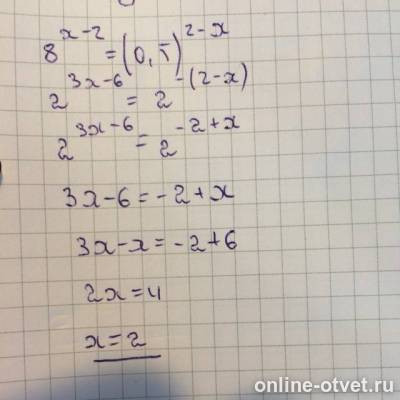 8^(x-2) = (0,5)^(2-x)
2^(3x-6) = 2^(-(2-x))
2^(3x-6) = 2^(-2+x)
3x-6=-2+x
3x-x=-2+6
2x=4
x=2
online-otvet.ru